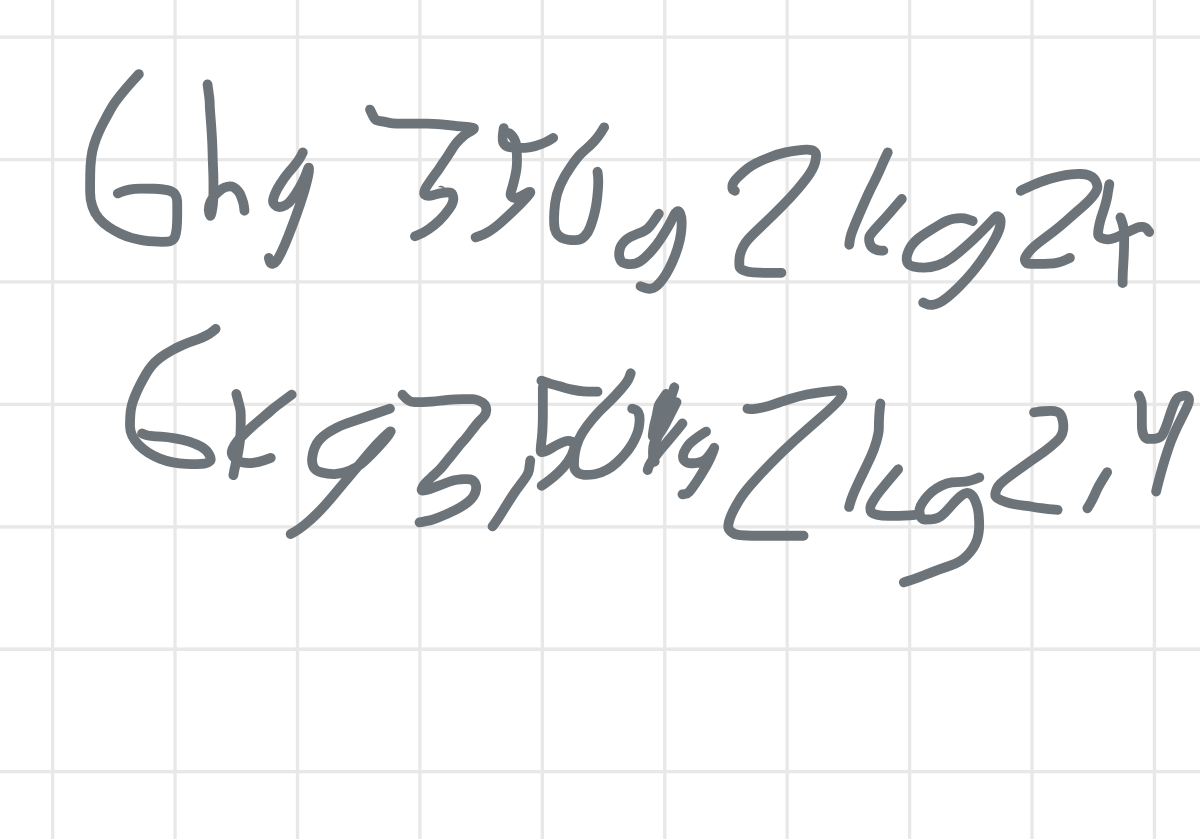 6hg 350g 2kg 24
6kg 3,50kg 2kg 2,4